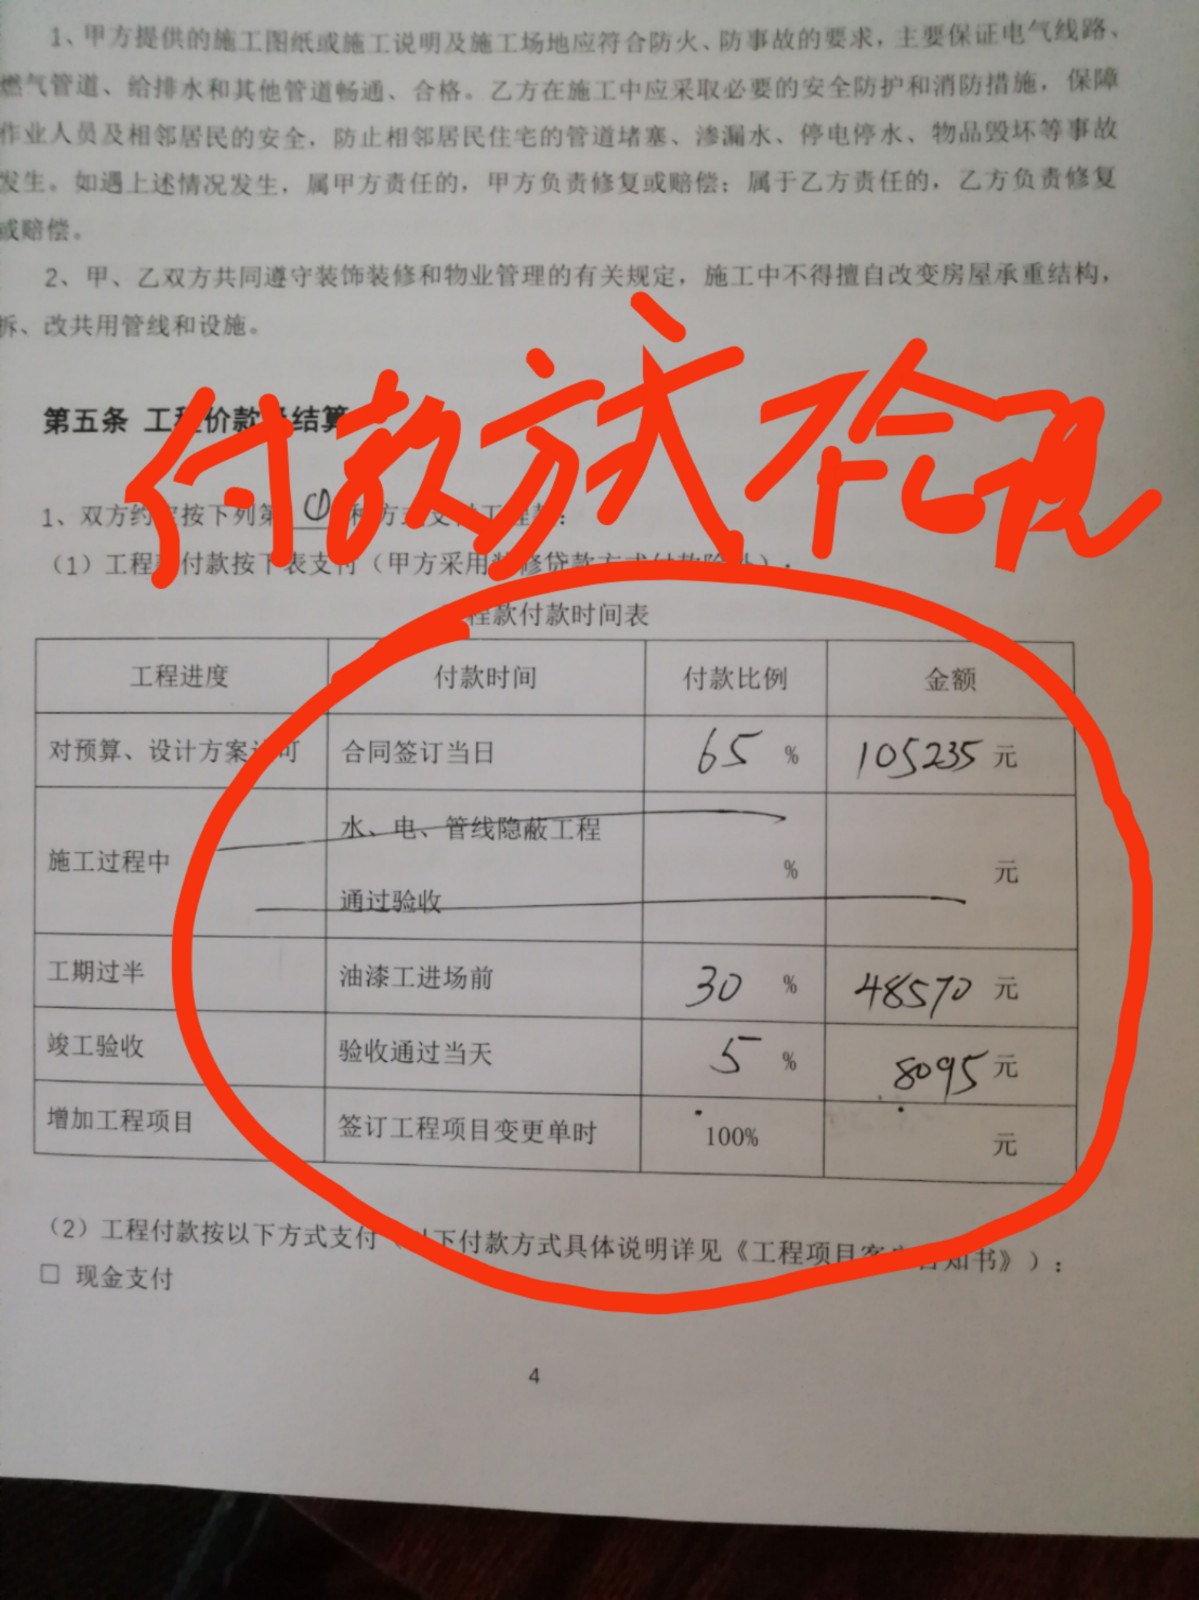 1、甲方提供的施工图纸或施工说明及施工场地应符合防火、防事故的要求，主要保证电气线路、
燃气管道、给排水和其他管道畅通、合格。乙方在施工中应采取必要的安全防护和消防措施，保障
作业人员及相邻居民的安全，防止相邻居民住宅的管道堵塞、渗漏水、停电停水、物品毁坏等事故
发生。如遇上述情况发生，属甲方责任的，甲方负责修复或赔偿；属于乙方责任的，乙方负责修复
或赔偿。
2、甲、乙双方共同遵守装饰装修和物业管理的有关规定，施工中不得擅自改变房屋承重结构，
拆、改共用管线和设施。
付款方式不合规
第五条 工程价款及结算
1、双方约定按下列第 (1) 种方式支付工程款：
（1）工程款付款按下表支付（甲方采用装修贷款方式付款除外）．
工程款付款时间表
工程进度 付款时间 付款比例 金额
对预算、设计方案认可 合同签订当日 65 % 105235 元
施工过程中 水、电、管线隐蔽工程
通过验收 % 元
工期过半 油漆工进场前 30 % 48570 元
竣工验收 验收通过当天 5 % 8095 元
增加工程项目 签订工程项目变更单时 100% 元
（2）工程付款按以下方式支付（以下付款方式具体说明详见《工程项目客户告知书》）：
□ 现金支付
4